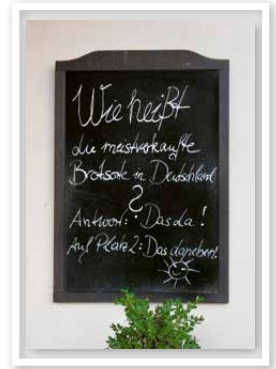 Wie heißt
die meistverkaufte
Brotsorte in Deutschland
?
Antwort: "Das da!
Auf Platz 2: Das daneben!